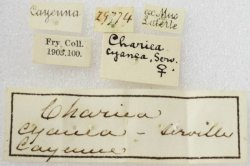 Cayenna
29774
ex. Mus
Laferte
Fry Coll.
1905.100.
Chariea
cyanea, Serv.
♀
Chariea
cyanea - Serville
Cayenne